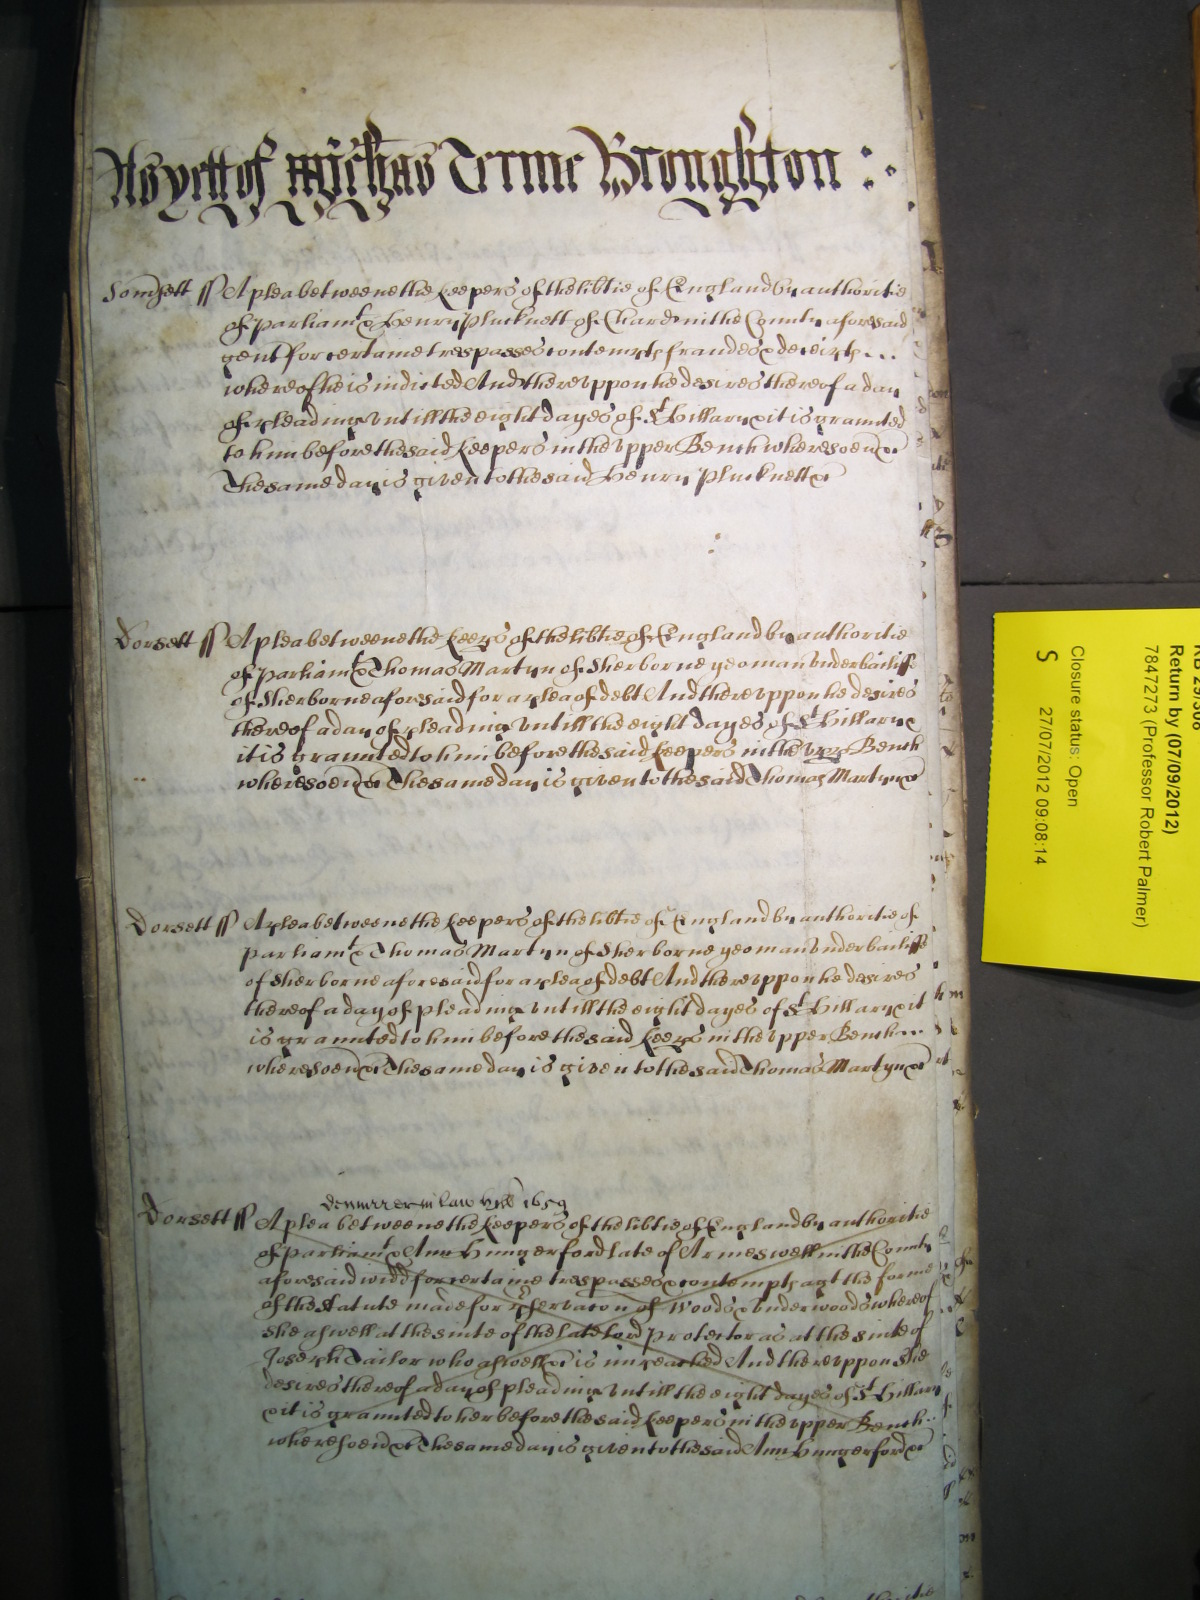 As yett of Michas Terme Broughton :
Somsett ss A plea betweene the keepers of the libtie of England by authoritie
of parliamt & Henry Plucknett of Chard in the County aforesaid
gent for certaine trespasses contempts fraudes & deceipts ...
whereof he is indicted And thereuppon he desires thereof a day
of pleading untill the eight dayes of St Hillary & it is graunted
to him before the said keepers in the upper Bench wheresoev &c
The same day is given to the said Henry Plucknett &c
Dorsett ss A plea betweene the keeps of the libtie of England by authoritie
of parliamt & Thomas Martyn of Sherborne yeoman underbailiff
of Sherborne aforesaid for a plea of debt And thereuppon he desires
thereof a day of pleading untill the eight dayes of St Hillary &
it is graunted to him before the said keepers in the upp Bench
wheresoev &c The same day is given to the said Thomas Martyn &c
Dorsett ss A plea betweene the keepers of the libtie of England by authoritie of
parliamt & Thomas Martyn of Sherborne yeoman underbailiff
of Sherborne aforesaid for a plea of debt And thereuppon he desires
thereof a day of pleading untill the eight dayes of St Hillary & it
is graunted to him before the said keeps in the upper Bench ...
wheresoev &c The same day is given to the said Thomas Martyn &c
demurrer in law Hill 1659
Dorsett ss A plea betweene the keepers of the libtie of England by authoritie
of parliamt & Ann Hungerford late of Armeswell in the County
aforesaid widd for certaine trespasses & contempts agt the forme
of the statute made for pservacon of Woods & underwoods whereof
she aswell at the suite of the late lord protector as at the suite of
Joseph Tailor who aswell &c is impeached And thereuppon she
desires thereof a day of pleading untill the eight dayes of St Hillary
& it is graunted to her before the said keepers in the upper Bench ..
wheresoev &c The same day is given to the said Ann Hungerford &c
Return by (07/09/2012)
7847273 (Professor Robert Palmer)
Closure status: Open
S 27/07/2012 09:08:14